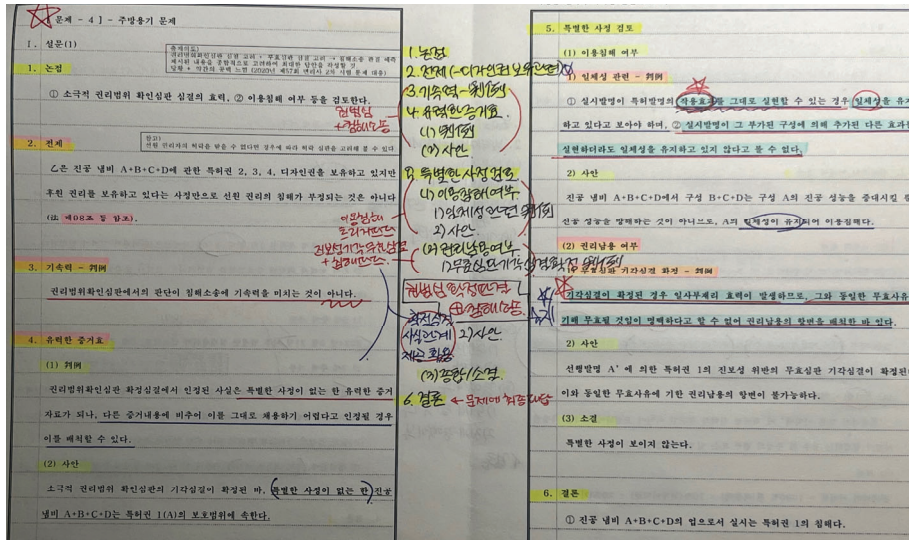 [ 문제 - 4 ] - 주방용기 문제
I. 설문(1)
1. 논점
① 소극적 권리범위 확인심판 심결의 효력, ② 이용침해 여부 등을 검토한다.
2. 전제
참고)
乙은 진공 냄비 A+B+C+D에 관한 특허권 2, 3, 4, 디자인권을 보유하고 있지만
후원 권리를 보유하고 있다는 사정만으로 선원 권리의 침해가 부정되는 것은 아니다
(法 제98조 등 참조).
3. 기속력 - 判例
권리범위확인심판에서의 판단이 침해소송에 기속력을 미치는 것이 아니다.
4. 유력한 증거효
(1) 判例
권리범위확인심판 확정심결에서 인정된 사실은 특별한 사정이 없는 한 유력한 증거
자료가 되나, 다른 증거내용에 비추어 이를 그대로 채용하기 어렵다고 인정될 경우
이를 배척할 수 있다.
(2) 사안
소극적 권리범위 확인심판의 기각심결이 확정된 바, 특별한 사정이 없는 한 진공
냄비 A+B+C+D는 특허권 1(A)의 보호범위에 속한다.
1. 논점
2. 전제
3. 기속력 - 判例
4. 유력한 증거효
(1) 判例
(2) 사안
권범심
+ 침해소송
5. 특별한 사정 검토
(1) 이용침해여부
1) 일체성관련 判例
2) 사안
(2) 권리남용여부
1) 무효심판기각심결확정 判例
2) 사안
(3) 종합/소결
6. 결론
5. 특별한 사정 검토
(1) 이용침해 여부
1) 일체성 관련 - 判例
① 실시발명이 특허발명의 작용효과를 그대로 실현할 수 있는 경우 일체성을 유지
하고 있다고 보아야 하며, ② 실시발명이 그 부가된 구성에 의해 추가된 다른 효과를
실현하더라도 일체성을 유지하고 있지 않다고 볼 수 없다.
2) 사안
진공 냄비 A+B+C+D에서 구성 B+C+D는 구성 A의 진공 성능을 증대시킬 뿐
진공 성능을 방해하는 것이 아니므로, A의 일체성이 유지되어 이용침해다.
(2) 권리남용 여부
1) 무효심판 기각심결 확정 - 判例
기각심결이 확정된 경우 일사부재리 효력이 발생하므로, 그와 동일한 무효사유
기해 무효될 것임이 명백하다고 할 수 없어 권리남용의 항변을 배척한 바 있다.
2) 사안
선행발명 A'에 의한 특허권 1의 진보성 위반의 무효심판 기각심결이 확정된
이와 동일한 무효사유에 기한 권리남용의 항변이 불가하다.
(3) 소결
특별한 사정이 보이지 않는다.
6. 결론
① 진공 냄비 A+B+C+D의 업으로서 실시는 특허권 1의 침해다.